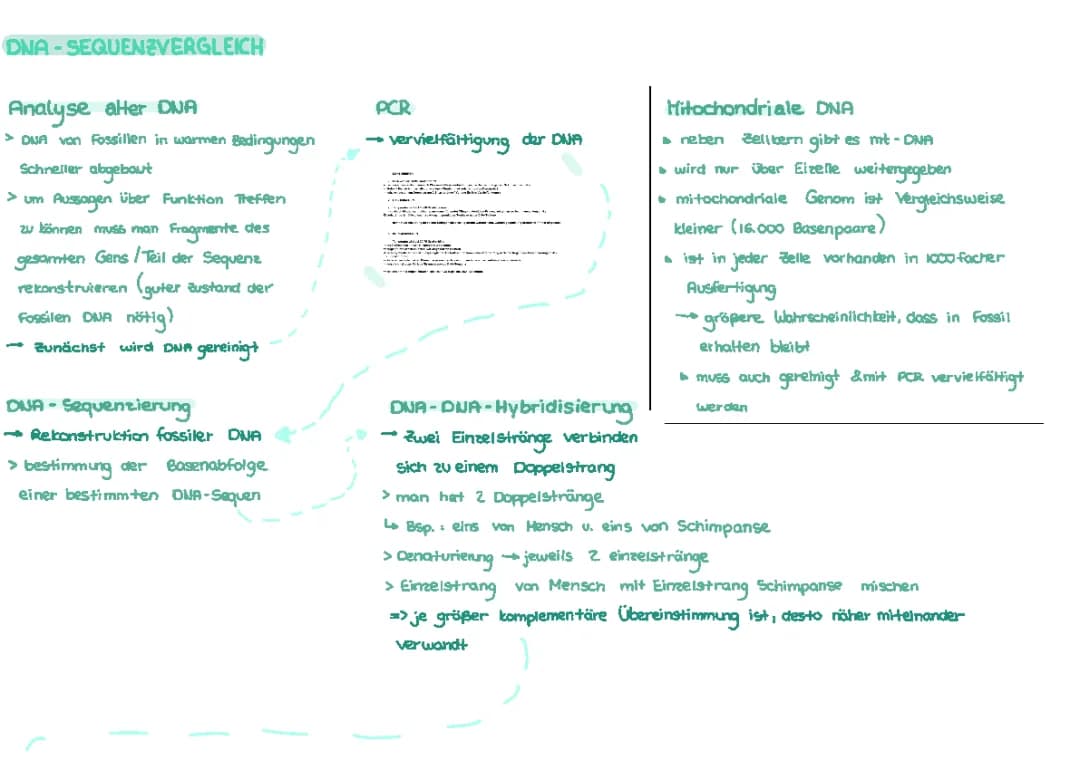 DNA - SEQUENZVERGLEICH
Analyse alter DNA
> DNA von Fossillen in warmen Bedingungen
Schneller abgebaut
> um Aussagen über Funktion Treffen
zu können muss man Fragmente des
gesamten Gens / Teil der Sequenz
rekonstruieren (guter Zustand der
Fossilen DNA nötig)
→ Zunächst wird DNA gereinigt
PCR
→ vervielfältigung der DNA
Mitochondriale DNA
↳ neben Zellkern gibt es mt - DNA
↳ wird nur über Eizelle weitergegeben
↳ mitochondriale Genom ist Vergleichsweise
kleiner (16.000 Basenpaare)
↳ ist in jeder Zelle vorhanden in 1000facher
Ausfertigung
→ größere Wahrscheinlichkeit, dass in Fossil
erhalten bleibt
↳ muss auch gereinigt & mit PCR vervielfältigt
werden
DNA - Sequenzierung
→ Rekonstruktion fossiler DNA
> bestimmung der Basenabfolge
einer bestimmten DNA-Sequen
DNA - DNA - Hybridisierung
→ Zwei Einzelstränge verbinden
sich zu einem Doppelstrang
> man hat 2 Doppelstränge
↳ Bsp. : eins von Mensch u. eins von Schimpanse
> Denaturierung → jeweils 2 einzelstränge
> Einzelstrang von Mensch mit Einzelstrang Schimpanse mischen
=> je größer komplementäre Übereinstimmung ist, desto näher miteinander
verwandt